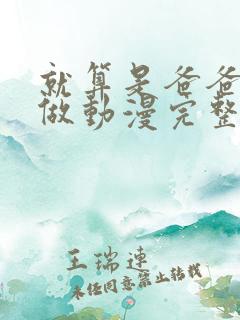 就算是爸爸
做動漫完整
王瑞連
未经同意禁止转载